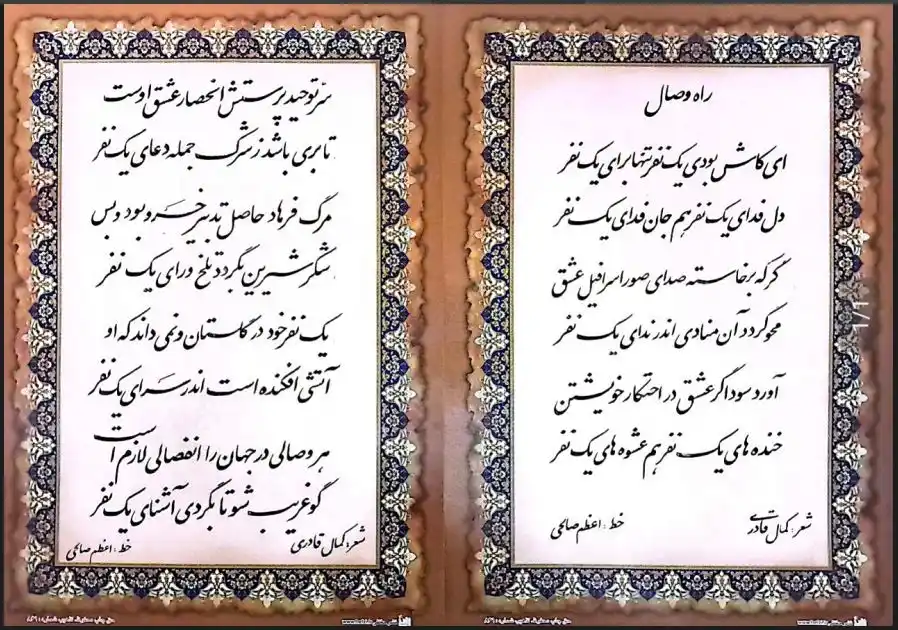 راه وصال
ای کاش بودی یک نفر تنها برای یک نفر
دل فدای یک نفر هم جان فدای یک نفر
گر که برخاسته صدای صور اسرافیل عشق
محو گردد آن منادی اندر ندای یک نفر
آورد سوداگر عشق در احتکار خویشتن
خنده های یک نفر هم عشوه های یک نفر
شعر: کمال قادری
خط: اعظم صالحی
سرّ توحید پرستش انحصار عشق اوست
تا بری باشد ز شرک جمله دعای یک نفر
مرگ فرهاد حاصل تدبیر خسرو بود و بس
شکر شیرین نگردد تلخ ورای یک نفر
یک نفر خود در گلستان و نمی داند که او
آتشی افکنده است اندر سرای یک نفر
هر وصالی در جهان را انفصالی لازم است
گو غریب شو تا بگردی آشنای یک نفر
شعر: کمال قادری
خط: اعظم صالحی
1/1